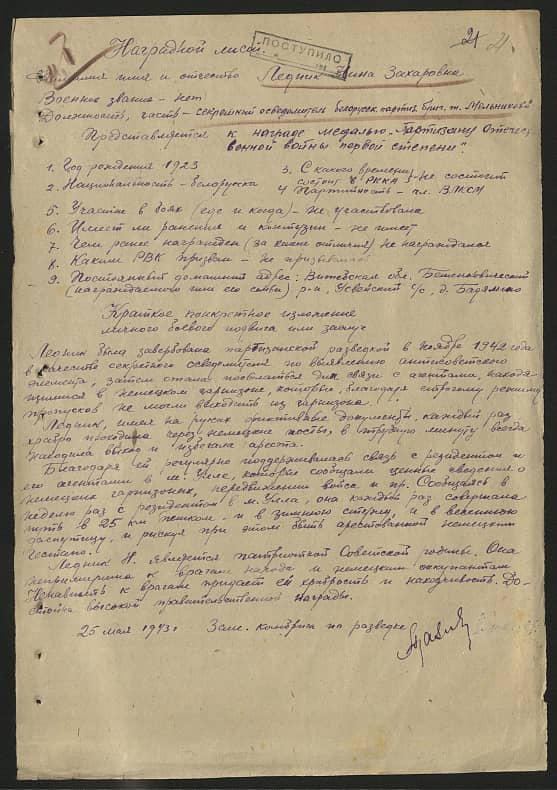 21 21.
ПОСТУПИЛО
Наградной лист.
Фамилия имя и отчество Ледник Нина Захаровна
Военное звание – нет
Должность, часть – секретный осведомитель белорусск. партиз. бриг. т. Мельникова
Представляется к награде медалью „Партизану Отечес-
венной войны первой степени"
1. Год рождения 1923
3. С какого времени
состоит в РККА – не состоит
2. Национальность – белоруска
4 Партийность – чл. ВЛКСМ
5. Участие в боях (где и когда) – не участвовала
6. Имеет ли ранения и контузии – не имеет
7. Чем ранее награжден (за какие отличия) не награждался
8. Каким РВК призван – не призывалась
9. Постоянный домашний адрес: Витебская обл. Бешенковический
(награждаемого или его семьи) р-н, Усвейский с/с, д.
Краткое конкретное изложение
личного боевого подвига или заслуг
Ледник была завербована партизанской разведкой в ноябре 1942 года
в качестве секретного осведомителя по выявлению антисоветского
элемента, затем стала появляться для связи с агентами, находя-
щимися в немецком гарнизоне, которые благодаря строгому режиму
пропусков не могли выходить из гарнизона.
Ледник, имея на руках фиктивные документы, каждый раз
храбро проходила через немецкие посты, в трудную минуту всегда
находила выход и избегала ареста.
Благодаря ей регулярно поддерживалась связь с резидентом и
его агентами в м. Улле, которые сообщали ценные сведения о
немецких гарнизонах, передвижении войск и пр. Сообщаясь в
неделю раз с резидентом в м. Улла, она каждый раз совершала
путь в 25 км пешком и в зимнюю стужу, и в весеннюю
распутицу, и рискуя при этом быть арестованной немецким
гестапо.
Ледник Н. является патриоткой Советской родины. Она
непримирима к врагам народа и немецким оккупантам
Ненависть к врагам придает ей храбрость и находчивость. До-
стойна высокой правительственной награды.
25 мая 1943г Зам. комбрига по разведке